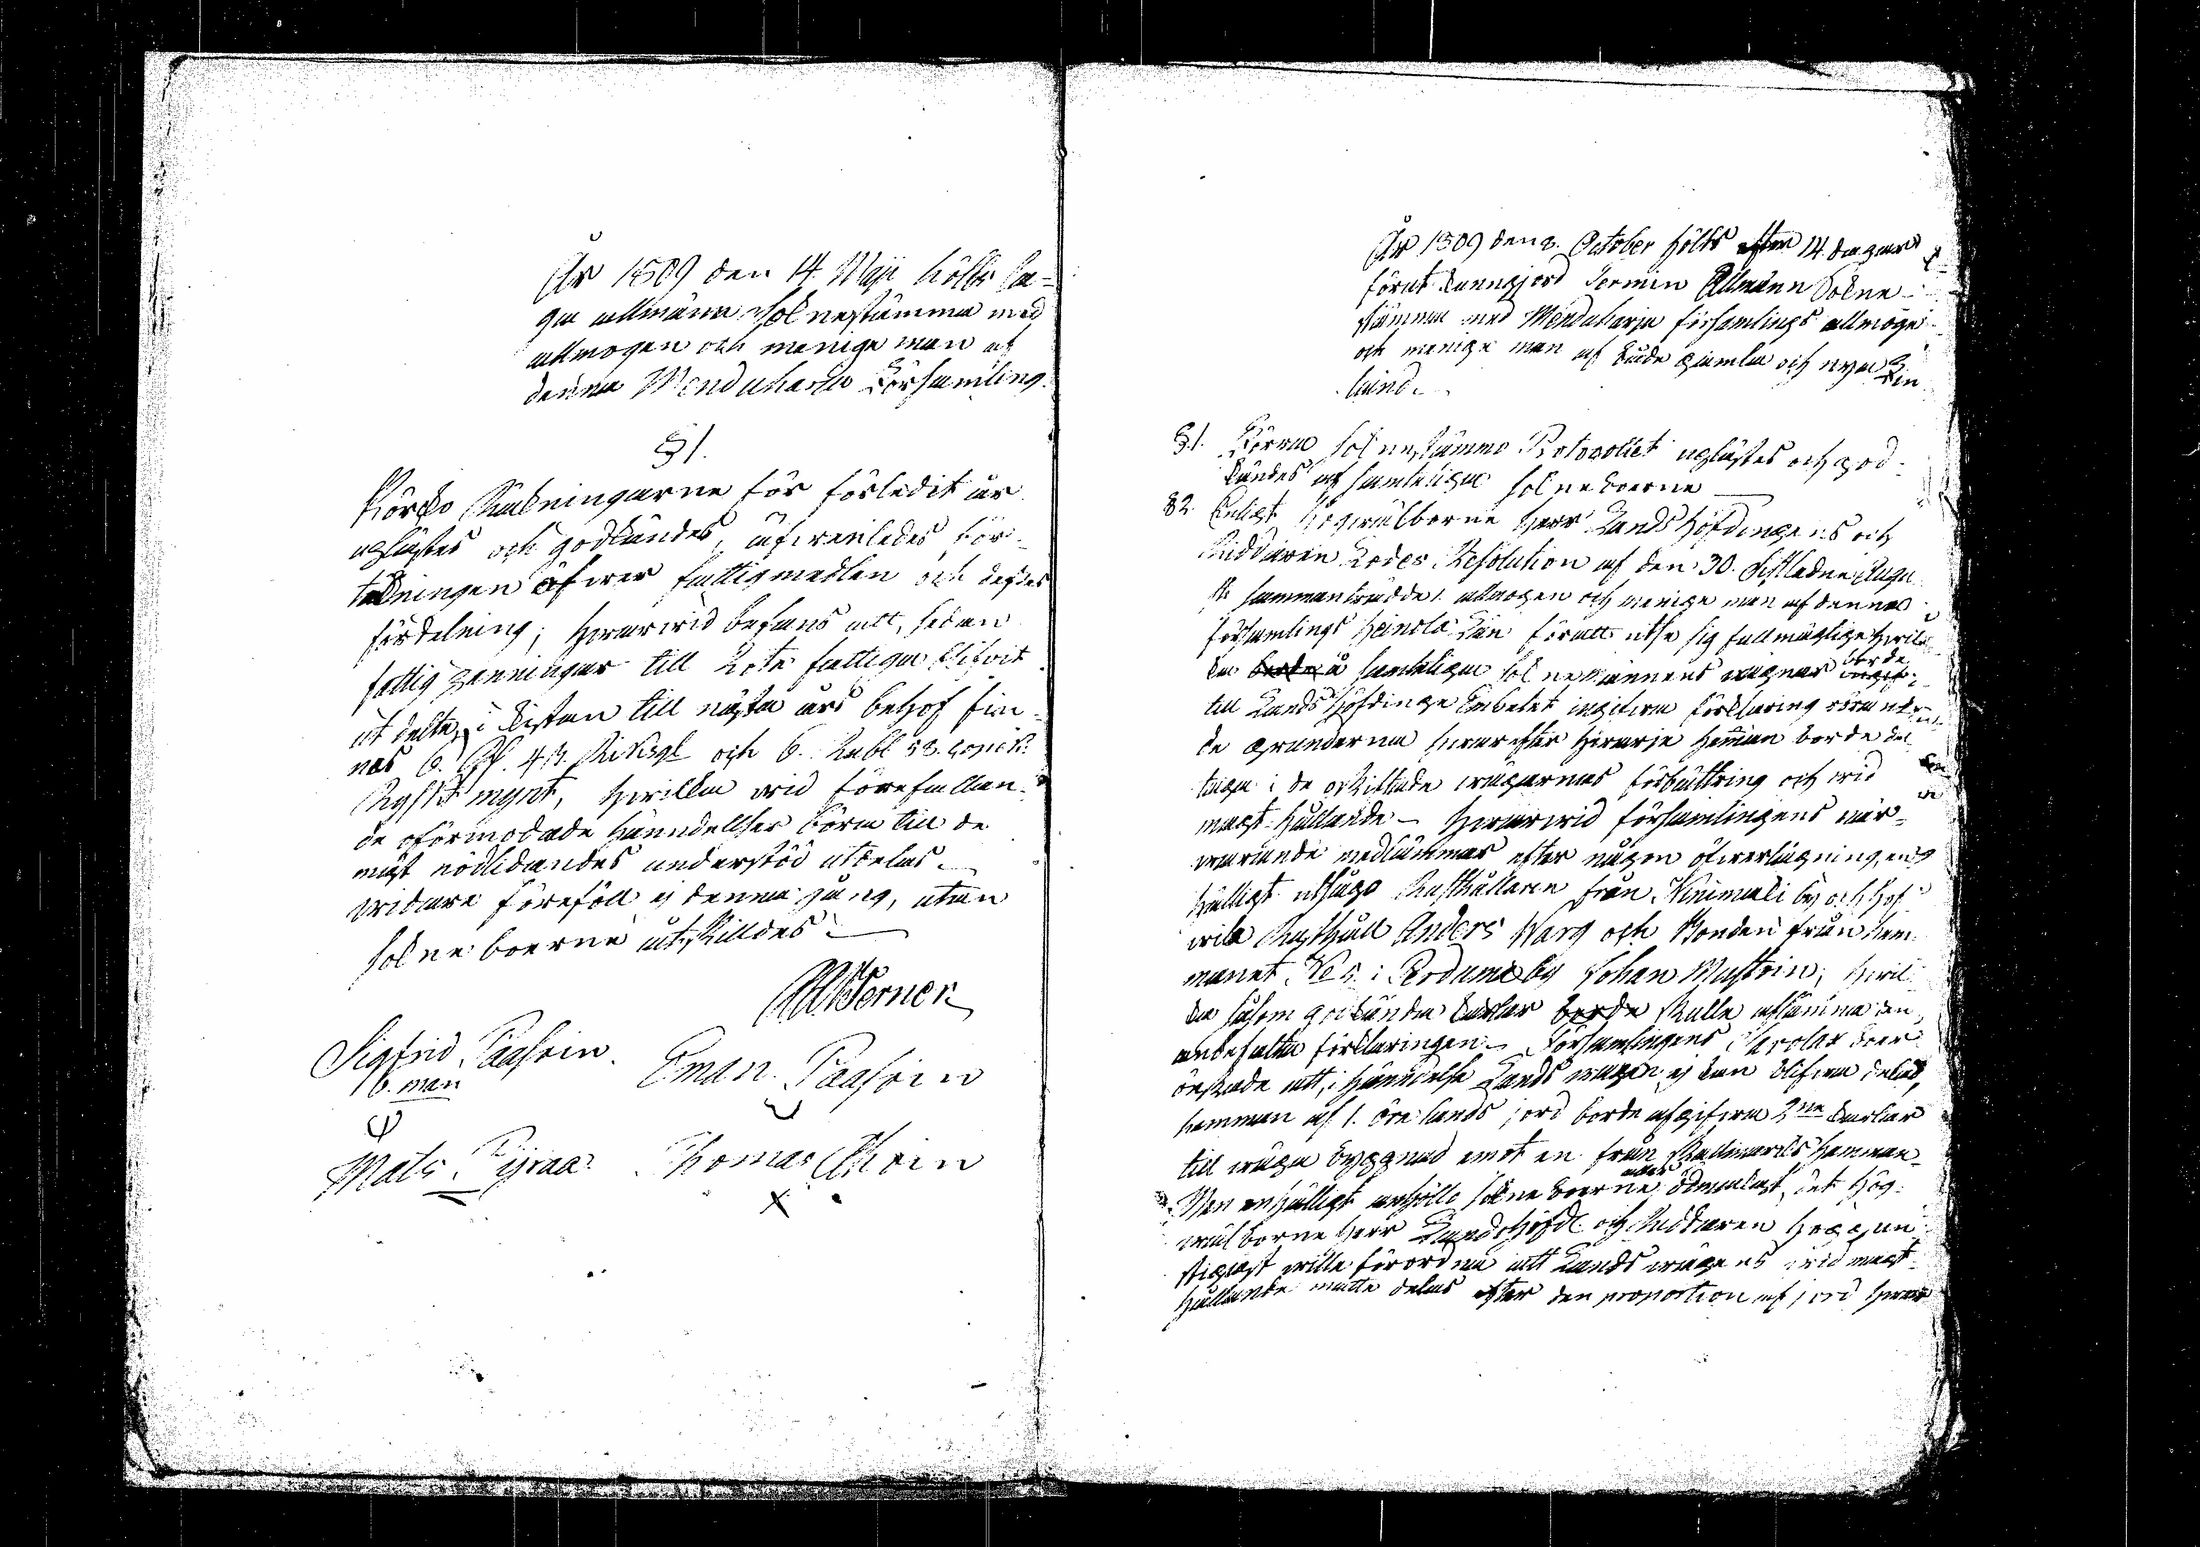 År 1809 den 14 Maji höllts la=
ga allmänn Soknestämma med
allmogen och menige man af
denna Menduharju Församling.
§1.
Kyrko Räkningarne för förledit år
uplästes och godkändes, äfvenledes för-
tekningen öfwer fattigmedlen och desses
fördelning; hwarwid befans att, sedan
fattig penningar till Rote fattiga blifvit
utdelte, i Kistan till nästa års behof fin-
nas 6. Rd. 4 s. Riksgd och 6. Rubl 53. Copik.
Ryskt mynt, hwilka wid förefallan-
de oförmodade händelser böra till de
mäst nödlidandes understöd utdelas.
widare föreföll ej denna gång, utan
sokne boerne åtskilldes.
Werner
Sigfrid Paasoin. Eman Paasoin
6. man
Mats Pyraa Thomas Ikoin
År 1809 den 8. October hölts efter 14 dagar
förut kunngjord Termin Allmänn Sokne-
stämma med Menduharju församlings allmoge
och menige man af både gamla och nya Fin-
land.
§1. Förra sokne stämmo Protocollet uplästes och god-
kändes af samtelige sokneboerne
§2. Enligt Högwälborne Herr Landshöfdingens och
Riddaren Resolution af den 30. sistledne Augu-
sti sammanträdde allmogen och menige man af denna
församlings Heinola Län för att utse sig fullmägtige hwil-
ka borde å samtelige sokne männens wägnar borde
till Landshöfdinge Embetet ingifwa förklaring röran-
de grunderna hwarefter hwarje hemman borde del-
taga i de oskiftade wägarnas förbättring och wid
magt hållande - hwarwid församlingens när-
warande medlämmar efter någon öfwerlägning, en-
hälligt utsågo Rusthållaren från by och
Rusthåll Anders Warg och Bonden från hem-
manet No 5 i by Johan Mustoin, hwil-
ka såsom godkända karlar borde skulle afstämma den
anbefalta förklaringen. Församlingens boer
önskade att, i händelse Lands wägen ej kan blifwa delad,
hemman af 1. öre lands jord borde afgifwa 2ne karlar
till wäga byggnad emot en från hemman.
Men enhälligt anhöllo sokne boerne ödmiukast, det Hög-
wälborne Herr Landshöfd. och Riddaren höggun-
stigast wille förordna att Lands wägens wid magt-
hållande måtte delas efter den proportion af jord hwar